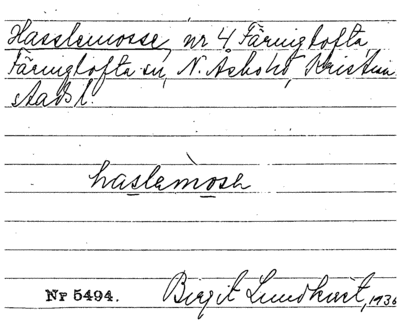 Hasslemosse, nr 4 Färingtofta,
Färingtofta sn, N. Åsbohd, Kristian
stads l.
haslemosə
Nr 5494.
Birgit Lundkvist, 1936